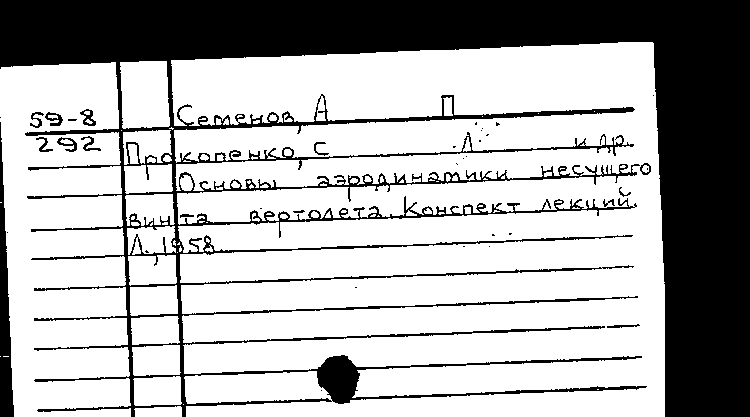 59-8 Семенов, А П
292 Прокопенко, С Л и др.
Основы аэродинамики несущего
винта вертолета. Конспект лекций.
Л., 1958.